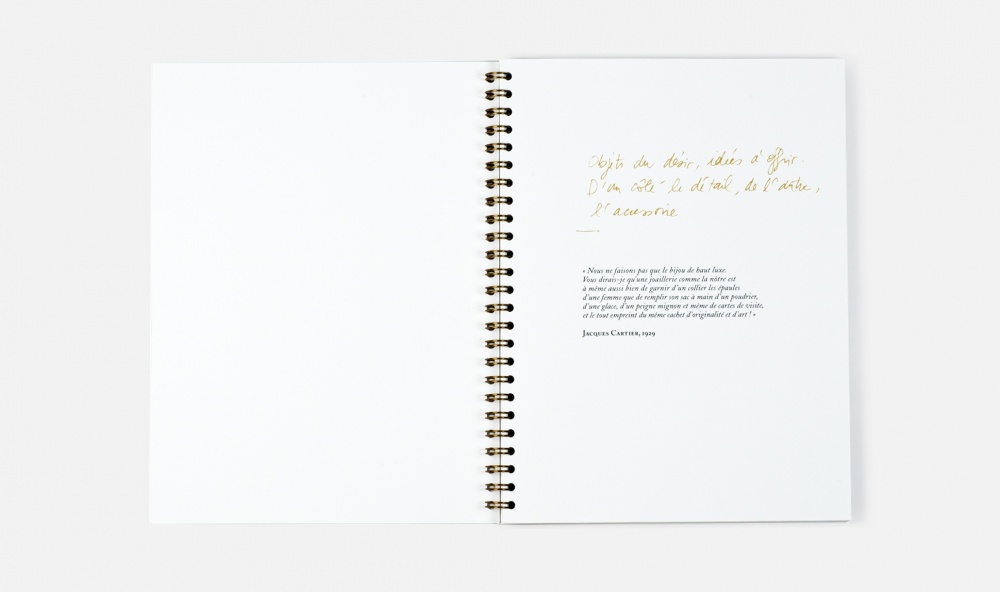 Objets du désir, idées à offrir.
D'un côté le détail, de l'autre,
l'accessoire
« Nous ne faisons pas que le bijou de haut luxe.
Vous dirais-je qu'une joaillerie comme la nôtre est
à même aussi bien de garnir d'un collier les épaules
d'une femme que de remplir son sac à main d'un poudrier,
d'une glace, d'un peigne mignon et même de cartes de visite,
et le tout empreint du même cachet d'originalité et d'art ! »
Jacques Cartier, 1929